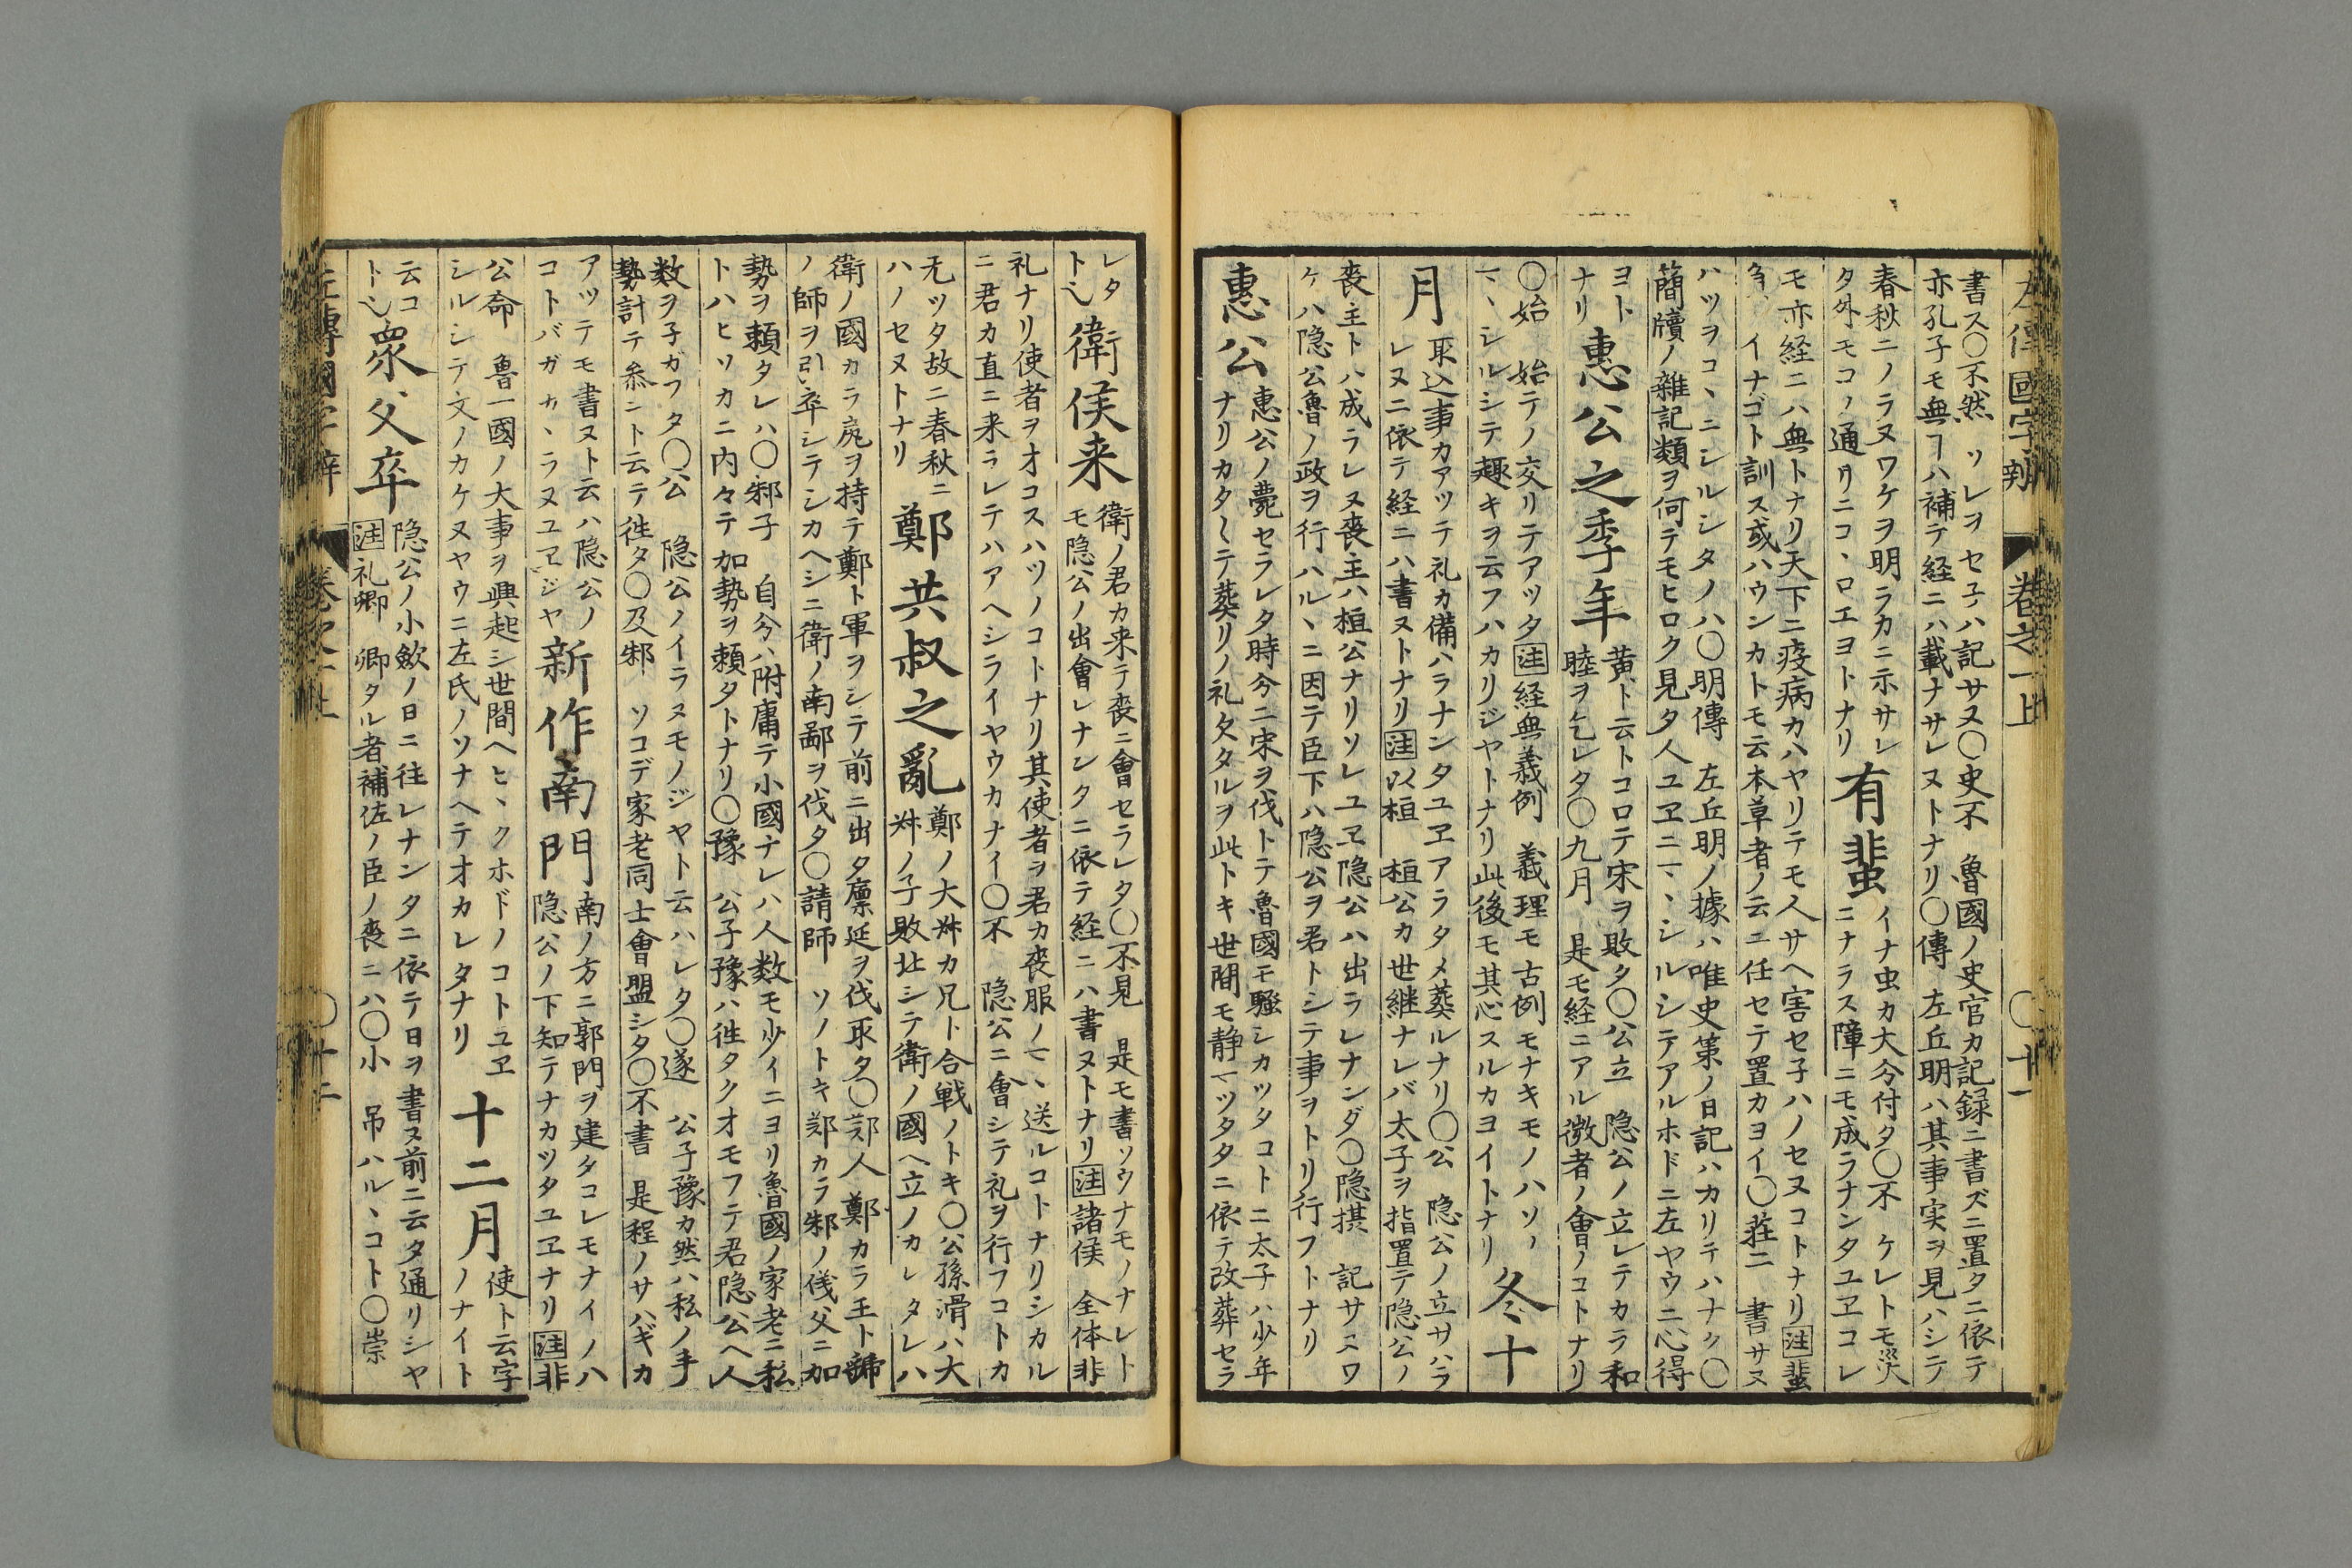 左傳國字辨 卷之一上 ○十一
書ス○不然 ソレヲセ子ハ記サヌ○史不 魯國ノ史官カ記録ニ書ズニ置タニ依テ
亦孔子モ無ヿハ補テ経ニハ載ナサレヌトナリ○傳 左丘明ハ其事実ヲ見ハシテ
春秋ニノラヌワケヲ明ラカニ示サレ
タ外モコノ通リニコヽロエヨトナリ
有蜚
イナ虫カ大分付タ○不 ケレトモ災
ニナラス障ニモ成ラナンタユヱコレ
モ亦経ニハ無トナリ天下ニ疫病カハヤリテモ人サヘ害セ子ハノセヌコトナリ注蜚
イナゴト訓ス或ハウンカトモ云本草者ノ云ニ任セテ置カヨイ○莊二 書サヌ
ハツヲコヽニシルシタノハ○明傳 左丘明ノ據ハ唯史第ノ日記ハカリテハナク○
簡牘ノ雜記類ヲ何テモヒロク見タ人ユヱニマヽシルシテアルホドニ左ヤウニ心得
ヨト
ナリ
惠公之季年
黄ト云トコロテ宋ヲ敗タ○公立 隐公ノ立レテカラ和
睦ヲ乞レタ○九月 是モ経ニアル微者ノ會ノコトナリ
○始 始テノ交リテアツタ注経無義例 義理モ古例モナキモノハソノ
マヽシルシテ趣キヲ云フハカリジヤトナリ此後モ其心スルカヨイトナリ
冬十
月
取込事カアツテ礼カ備ハラナンタユヱアラタメ葬ルナリ○公 隐公ノ立サハラ
レヌニ依テ経ニハ書ヌトナリ注以桓 桓公カ世継ナレバ太子ヲ指置テ隐公ノ
喪主トハ成ラレヌ喪主ハ桓公ナリソレユヱ隐公ハ出ラレナンダ○隐摂 記サニワ
ケハ隐公魯ノ政ヲ行ハルヽニ因テ臣下ハ隐公ヲ君トシテ事ヲトリ行フトナリ
惠公
惠公ノ薨セラレタ時分ニ宋ヲ伐トテ魯國モ騒シカツタコトニ太子ハ少年
ナリカタ〱テ葬リノ礼欠タルヲ此トキ世間モ静マツタタニ依テ改葬セラ
レタ
ト也
衛侯来
衛ノ君カ来テ喪ニ會セラレタ○不見 是モ書ソウナモノナレト
モ隐公ノ出會レナンタニ依テ経ニハ書ヌトナリ注諸侯 全体非
礼ナリ使者ヲオコスハツノコトナリ其使者ヲ君カ喪服ノマヽ送ルコトナリシカル
ニ君カ直ニ来ラレテハアヘシライヤウカナイ○不 隐公ニ會シテ礼ヲ行フコトカ
无ツタ故ニ春秋ニ
ハノセヌトナリ
鄭共叔之亂
鄭ノ大叔カ兄ト合戦ノトキ○公孫滑ハ大
叔ノ子敗北シテ衛ノ國ヘ立ノカレタレハ
衛ノ國カラ庇ヲ持テ鄭ト軍ヲシテ前ニ出タ廪延ヲ伐取タ○鄭人 鄭カラ王ト虢
ノ師ヲ引率シテシカヘシニ衛ノ南鄙ヲ伐タ○請師 ソノトキ鄭カラ邾ノ儀父ニ加
勢ヲ頼タレハ○邾子 自分ハ附庸テ小國ナレハ人数モ少イニヨリ魯國ノ家老ニ私
トハヒソカニ内々テ加勢ヲ頼タトナリ○豫 公子豫ハ徃タクオモフテ君隐公ヘ人
数ヲ子ガフタ○公 隐公ノイラヌモノジヤト云ハレタ○遂 公子豫カ然ハ私ノ手
勢計テ参ント云テ徃タ○及邾 ソコデ家老同士會盟シタ○不書 是程ノサハギカ
アツテモ書ヌト云ハ隐公ノ
コトバガカヽラヌユヱジヤ
新作南門
南ノ方ニ郭門ヲ建タコレモナイノハ
隐公ノ下知テナカツタユヱナリ注非
公命 魯一國ノ大事ヲ興起シ世間ヘヒヽクホドノコトユヱ
シルシテ文ノカケヌヤウニ左氏ノソナヘテオカレタナリ
十二月
使ト云字
ノナイト
云コ
ト也
衆父卒
隐公ノ小斂ノ日ニ往レナンタニ依テ日ヲ書ヌ前ニ云タ通リシヤ
注礼卿 卿タル者補佐ノ臣ノ喪ニハ○小 吊ハルヽコト○崇
左傳國字辨 卷之一上 ○十二